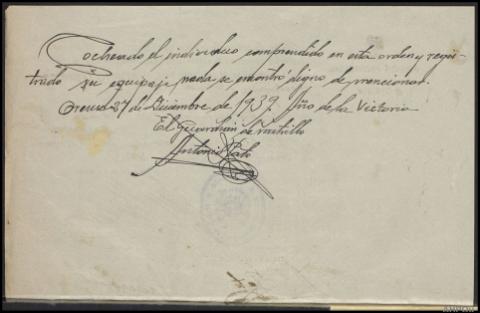 Cacheado el individuo comprendido en esta orden y regis-
trado su equipaje nada se encontró digno de mencionar.
Orense 27 de Diciembre de 1939. Año de la Victoria
El Guardián de
Antonio